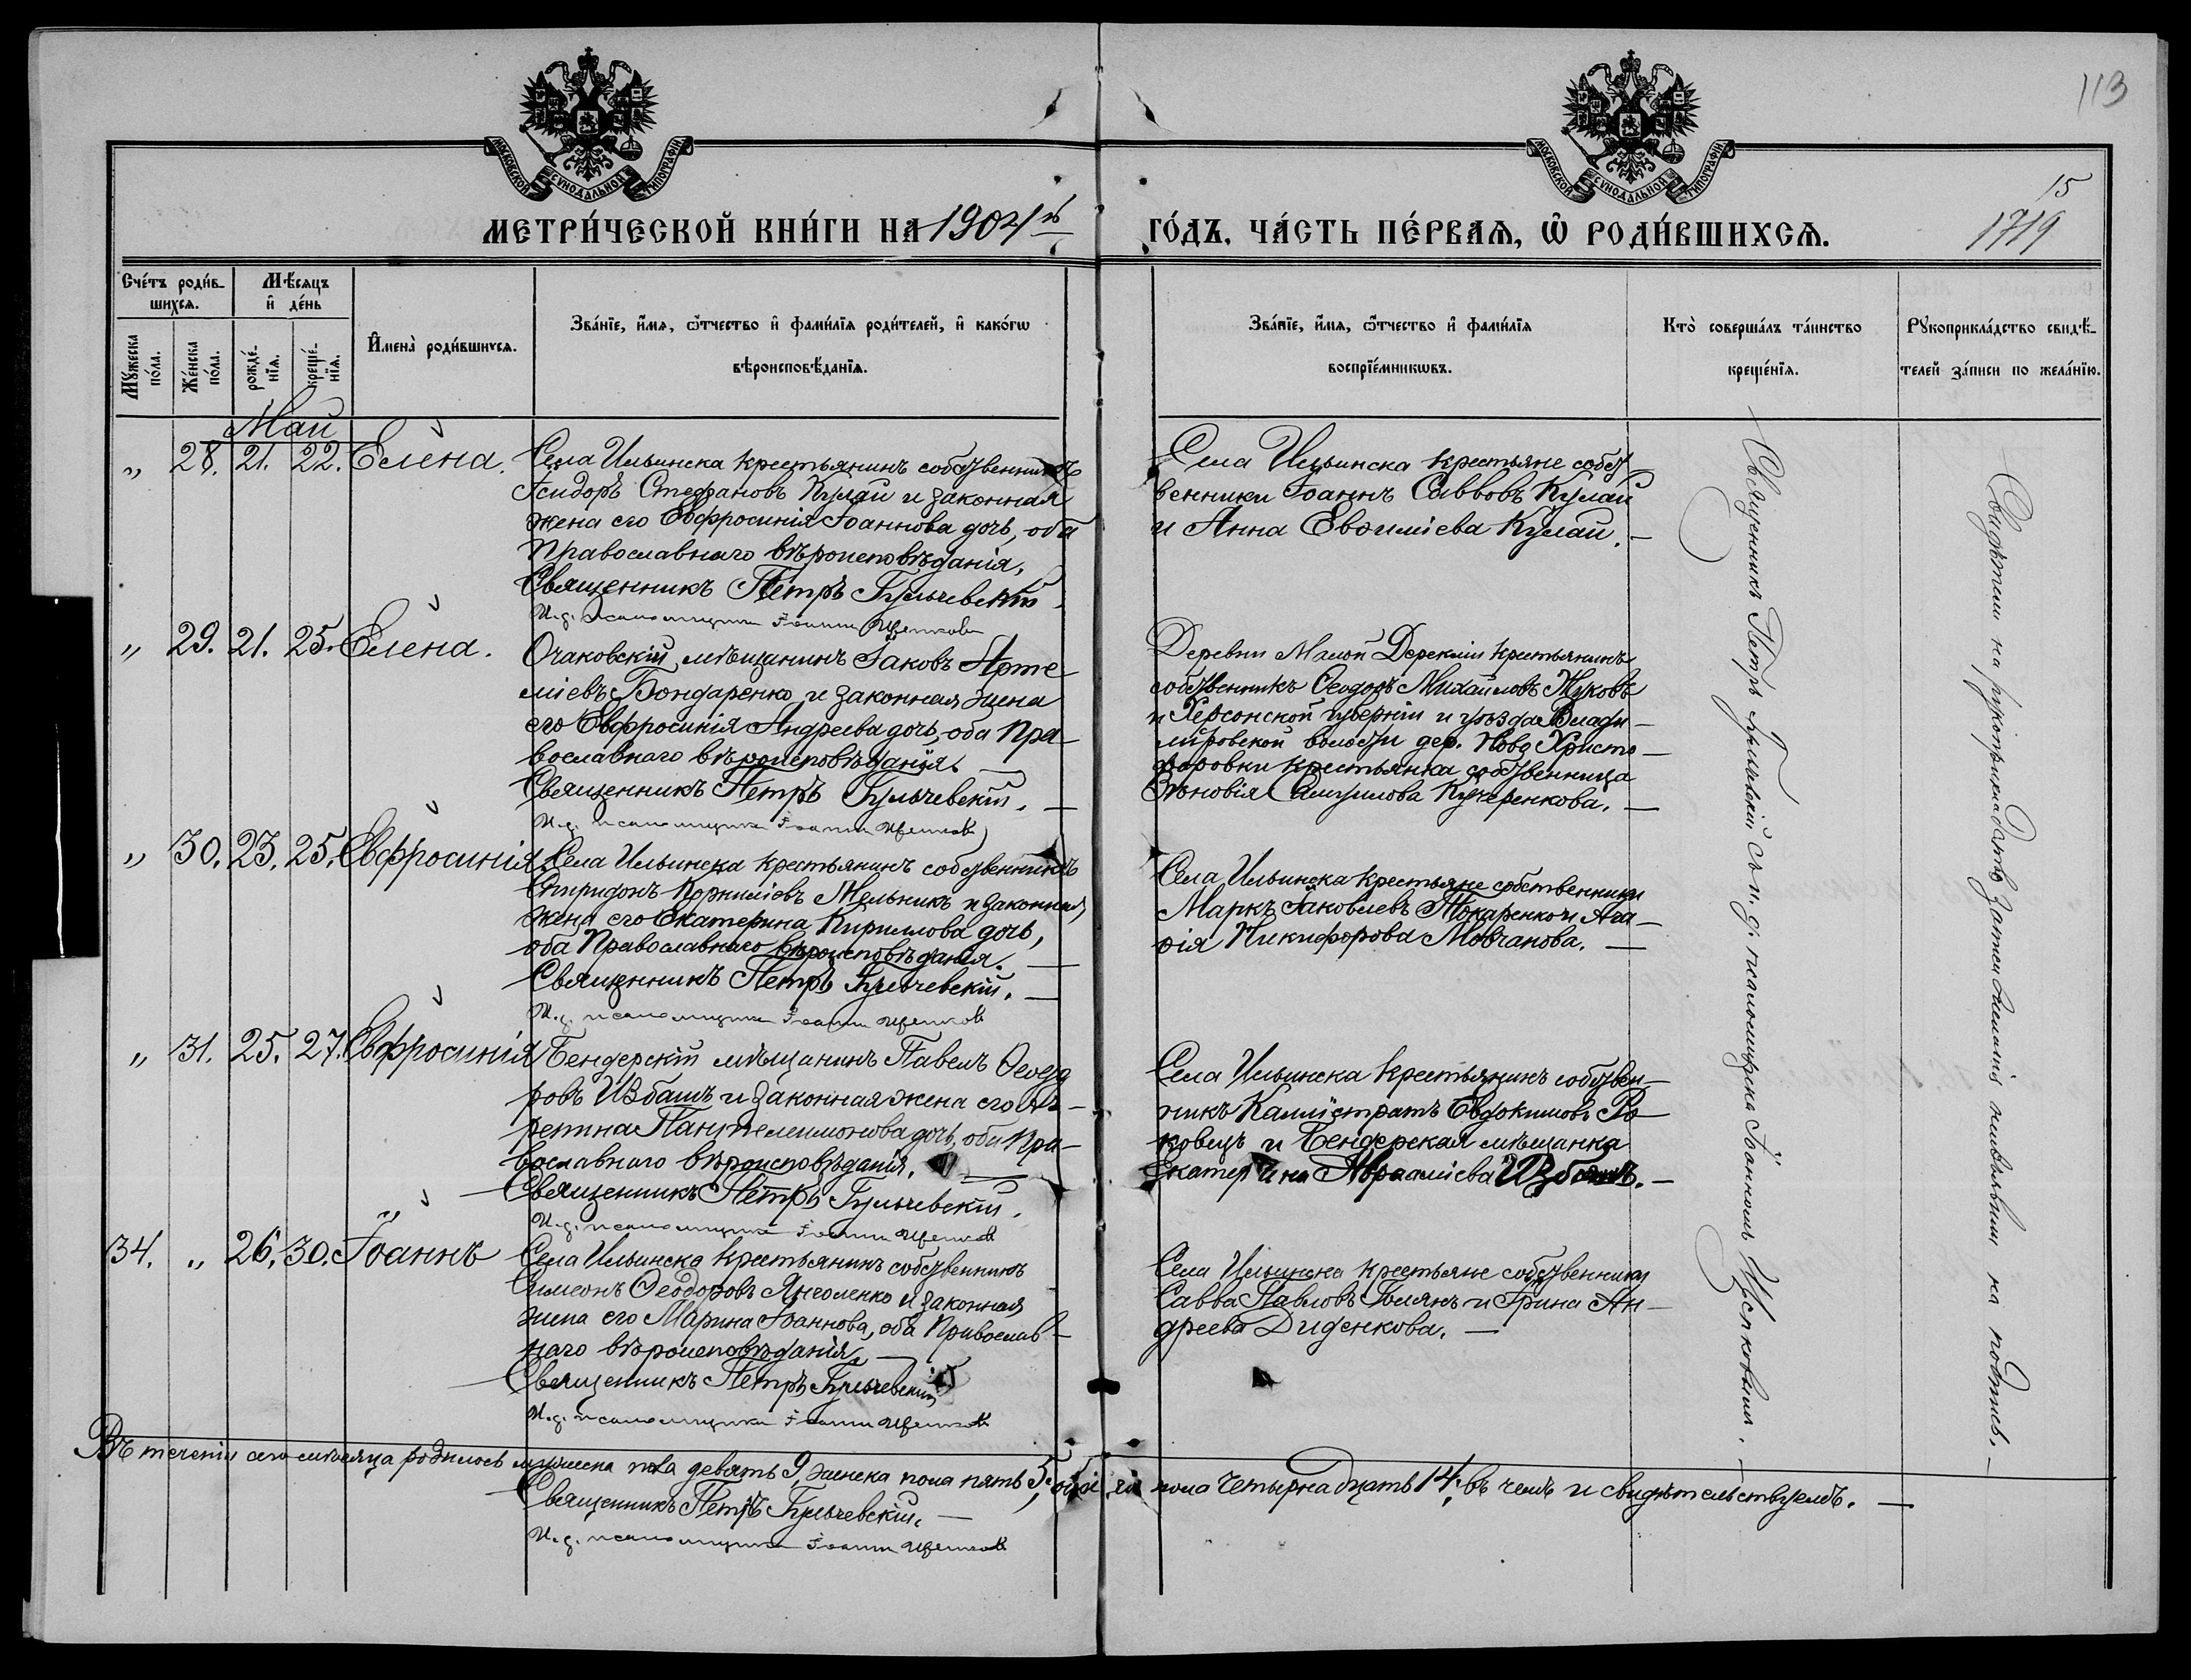 113
МОСКОВСКОЙ СѴНОДАЛЬНОЙ ТИПОГРАФІИ
МОСКОВСКОЙ СѴНОДАЛЬНОЙ ТИПОГРАФІИ
МЕТРИ́ЧЕСКОЙ КНИ́ГИ НА 1904й
ГО́ДЪ, ЧА́СТЬ ПЕ́РВАѦ, Ѽ РОДИ́ВШИХСѦ.
15
1719
Сче́тъ роди́в-
шихсѧ.
Мѣ́сѧцъ
и҆ де́нь
Мꙋ́жеска по́ла.
Же́нска по́ла.
рожде́-нїѧ.
креще́-нїѧ.
И҆мена̀ роди́вшихсѧ.
Зва́нїе, и҆́мѧ, ѻ҆́тчество и҆ фами́лїѧ роди́телей, и҆ како́гѡ
вѣроисповѣ́данїѧ.
Зва́нїе, и҆́мѧ, ѻ҆́тчество и҆ фами́лїѧ
воспрїе́мникѡвъ.
Кто̀ соверша́лъ та́инство
креще́нїѧ.
Рꙋкоприкла́дство свидѣ́-
телей за́писи по жела́нїю.
Май
„ 28. 21. 22. Елена.
Села Ильинска крестьянинъ собственникъ
Исидоръ Стефановъ Кулай и законная
жена его Евфросинія Іоаннова дочь, оба
Православнаго вѣроисповѣданія.
Священникъ Петръ Бульчевскій
И.д. псаломщика Іоаннъ Щепковъ
Села Ильинска крестьяне собст
венники Іоаннъ Саввовъ Кулай
и Анна Евѳиміева Кулай. —
„ 29. 21. 25. Елена.
Очаковскій мѣщанинъ Іаковъ Арте
міевъ Бондаренко и законная жена
его Евфросинія Андреева дочь, оба Пра-
вославнаго вѣроисповѣданія. —
Священникъ Петръ Бульчевскій. —
И.д. псаломщика Іоаннъ Щепковъ
Деревни Малой Дерекліи крестьянинъ
собственникъ Ѳеодоръ Михаиловъ Жуковъ
и Херсонской губерніи и уѣзда Влади-
міровской волости дер. Ново Христо-
форовки крестьянка собственница
Зѣновія Самуилова Кучеренкова. —
„ 30. 23. 25. Евфросинія
Села Ильинска крестьянинъ собственникъ
Спиридонъ Корниліовъ Мельникъ и законная
жена его Екатерина Кириллова дочь,
оба Православнаго вѣроисповѣданія. —
Священникъ Петръ Бульчевскій. —
И.д. псаломщика Іоаннъ Щепковъ
Села Ильинска крестьяне собственники
Маркъ Іаковлевъ Токаренко и Ага-
ѳія Никифорова Мовчанова. —
„ 31. 25. 27. Евфросинія
Бендерскій мѣщанинъ Павелъ Ѳеодо
ровъ Избашъ и законная жена его
Пантелеимонова дочь, оба Пра-
вославнаго вѣроисповѣданія. —
Священникъ Петръ Бульчевскій.
И.д. псаломщика Іоаннъ Щепковъ
Села Ильинска крестьянинъ собствен-
никъ Каллистратъ Евдокимовъ Ро-
ковецъ и Бендерская мѣщанка
Екатерина Авраамiева Избашъ. —
34. „ 26. 30. Іоаннъ
Села Ильинска крестьянинъ собственникъ
Симеонъ Ѳеодоровъ Янголенко и законная
жена его Марина Іоаннова, оба Православ-
наго вѣроисповѣданія. —
Священникъ Петръ Бульчевскій
И.д. псаломщика Іоаннъ Щепковъ
Села Ильинска крестьяне собственники
Савва Павловъ и Ирина Ан-
дреева Диденкова. —
Священникъ Петръ Бульчевскій съ и. д. псаломщика Іоанномъ Щепковымъ. —
Свидѣтели на рукоприкладство записи желанія не изъявили на подпись. —
Въ теченіи сего мѣсяца родилось мужеска пола девять 9, женска пола пять 5, обоего пола четырнадцать 14, въ чемъ и свидѣтельствуемъ. —
Священникъ Петръ Бульчевскій. —
И.д. псаломщика Іоаннъ Щепковъ